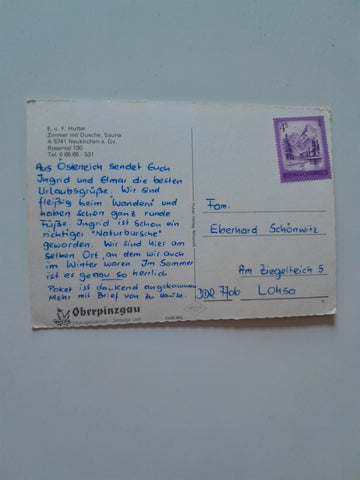 E. u. F. Hutter
Zimmer mit Dusche, Sauna
A-5741 Neukirchen a. Gv.
Rosental 130
Tel. 0 65 65 - 531
Aus Österreich sendet Euch
Ingrid und Elmar die besten
Urlaubsgrüße. Wir sind
fleißig beim Wandern und
haben schon ganz runde
Füße. Ingrid ist schon ein
richtiger "Naturbursche"
geworden. Wir sind hier am
selben Ort, an dem wir auch
im Winter waren. Im Sommer
ist es genau so herrlich
Paket ist dankend angekommen
Mehr mit Brief von zu Hause.
Oberpinzgau
4S
REPUBLIK ÖSTERREICH
Fam.
Eberhard Schönwitz
Am Ziegelteich 5
DDR 7706 Lohsa